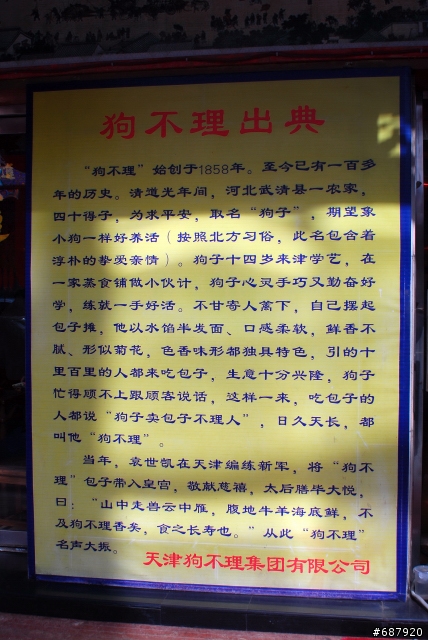 狗不理出典
“狗不理”始创于1858年。至今已有一百多
年的历史。清道光年间，河北武清县一农家，
四十得子，为求平安，取名“狗子”，期望象
小狗一样好养活（按照北方习俗，此名包含着
淳朴的挚爱亲情）。狗子十四岁来津学艺，在
一家蒸食铺做小伙计，狗子心灵手巧又勤奋好
学，练就一手好活。不甘寄人篱下，自己摆起
包子摊，他以水馅半发面、口感柔软，鲜香不
腻、形似菊花，色香味形都独具特色，引的十
里百里的人都来吃包子，生意十分兴隆，狗子
忙得顾不上跟顾客说话，这样一来，吃包子的
人都说“狗子卖包子不理人”，日久天长，都
叫他“狗不理”。
当年，袁世凯在天津编练新军，将“狗不
理”包子带入皇宫，敬献慈禧，太后膳毕大悦，
曰：“山中走兽云中雁，腹地牛羊海底鲜，不
及狗不理香矣，食之长寿也。”从此“狗不理”
名声大振。
天津狗不理集团有限公司
#687920